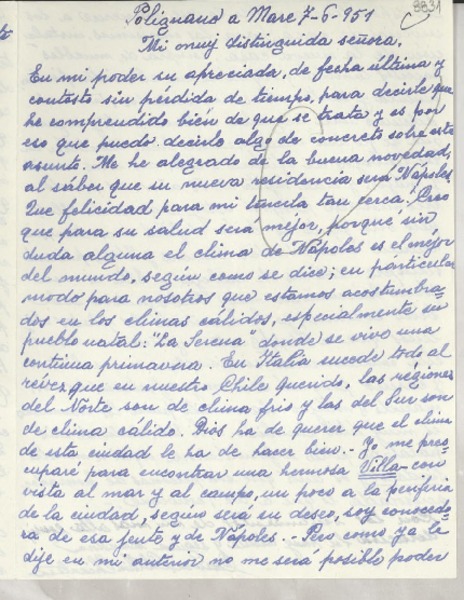 8831
Polignano a Mare 7-6-951
Mi muy distinguida señora.
En mi poder su apreciada, de fecha última y
contesto sin pérdida de tiempo, para decirle que
he comprendido bién de que se trata y es por
eso que puedo decirle algo de concreto sobre este
asunto. Me he alegrado de la buena novedad,
al sáber que su nueva residencia será Nápoles.
Que felicidad para mi tenerla tan cerca! Creo
que para su salud será méjor, porqué sin
duda alguna el clima de Nápoles es el méjor
del mundo, según como se dice; en párticular
modo para nosotros que estamos acostumbra-
dos en los climas cálidos, especialmente su
pueblo natal: "La Serena" donde se vive una
continua primavera. En Italia sucede todo al
révez que en nuestro Chile querido, las régiones
del Norte son de clima frio y las del Sur son
de clima cálido. Dios ha de querer que el clima
de esta ciudad le ha de hacer bien.- Yo me preo-
cuparé para encontrar una hermosa Villa con
vista al mar y al campo, un poco a la periferia
de la ciudad, según será en deseo, soy conocedo-
ra de esa jente y de Nápoles.- Pero como ya le
dije en mi anterior no me será posible poder